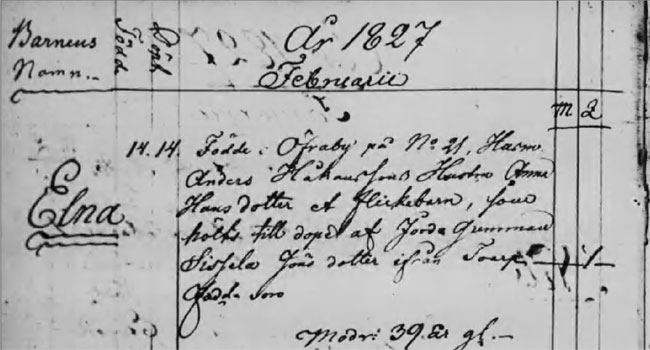 Barnens
Namn.
Född
Döpt
År 1827
Februarii
m Q
14. 14. Födde i Öfraby på No 21, Husm.
Anders Håkanssons Hustru Anna
Hans dotter et flickebarn, som
hölts till dopet af Jorda Gumman
Elna
Sissela Jöns dotter ifrån Toarp 1
födde
Modr: 39 år gl.